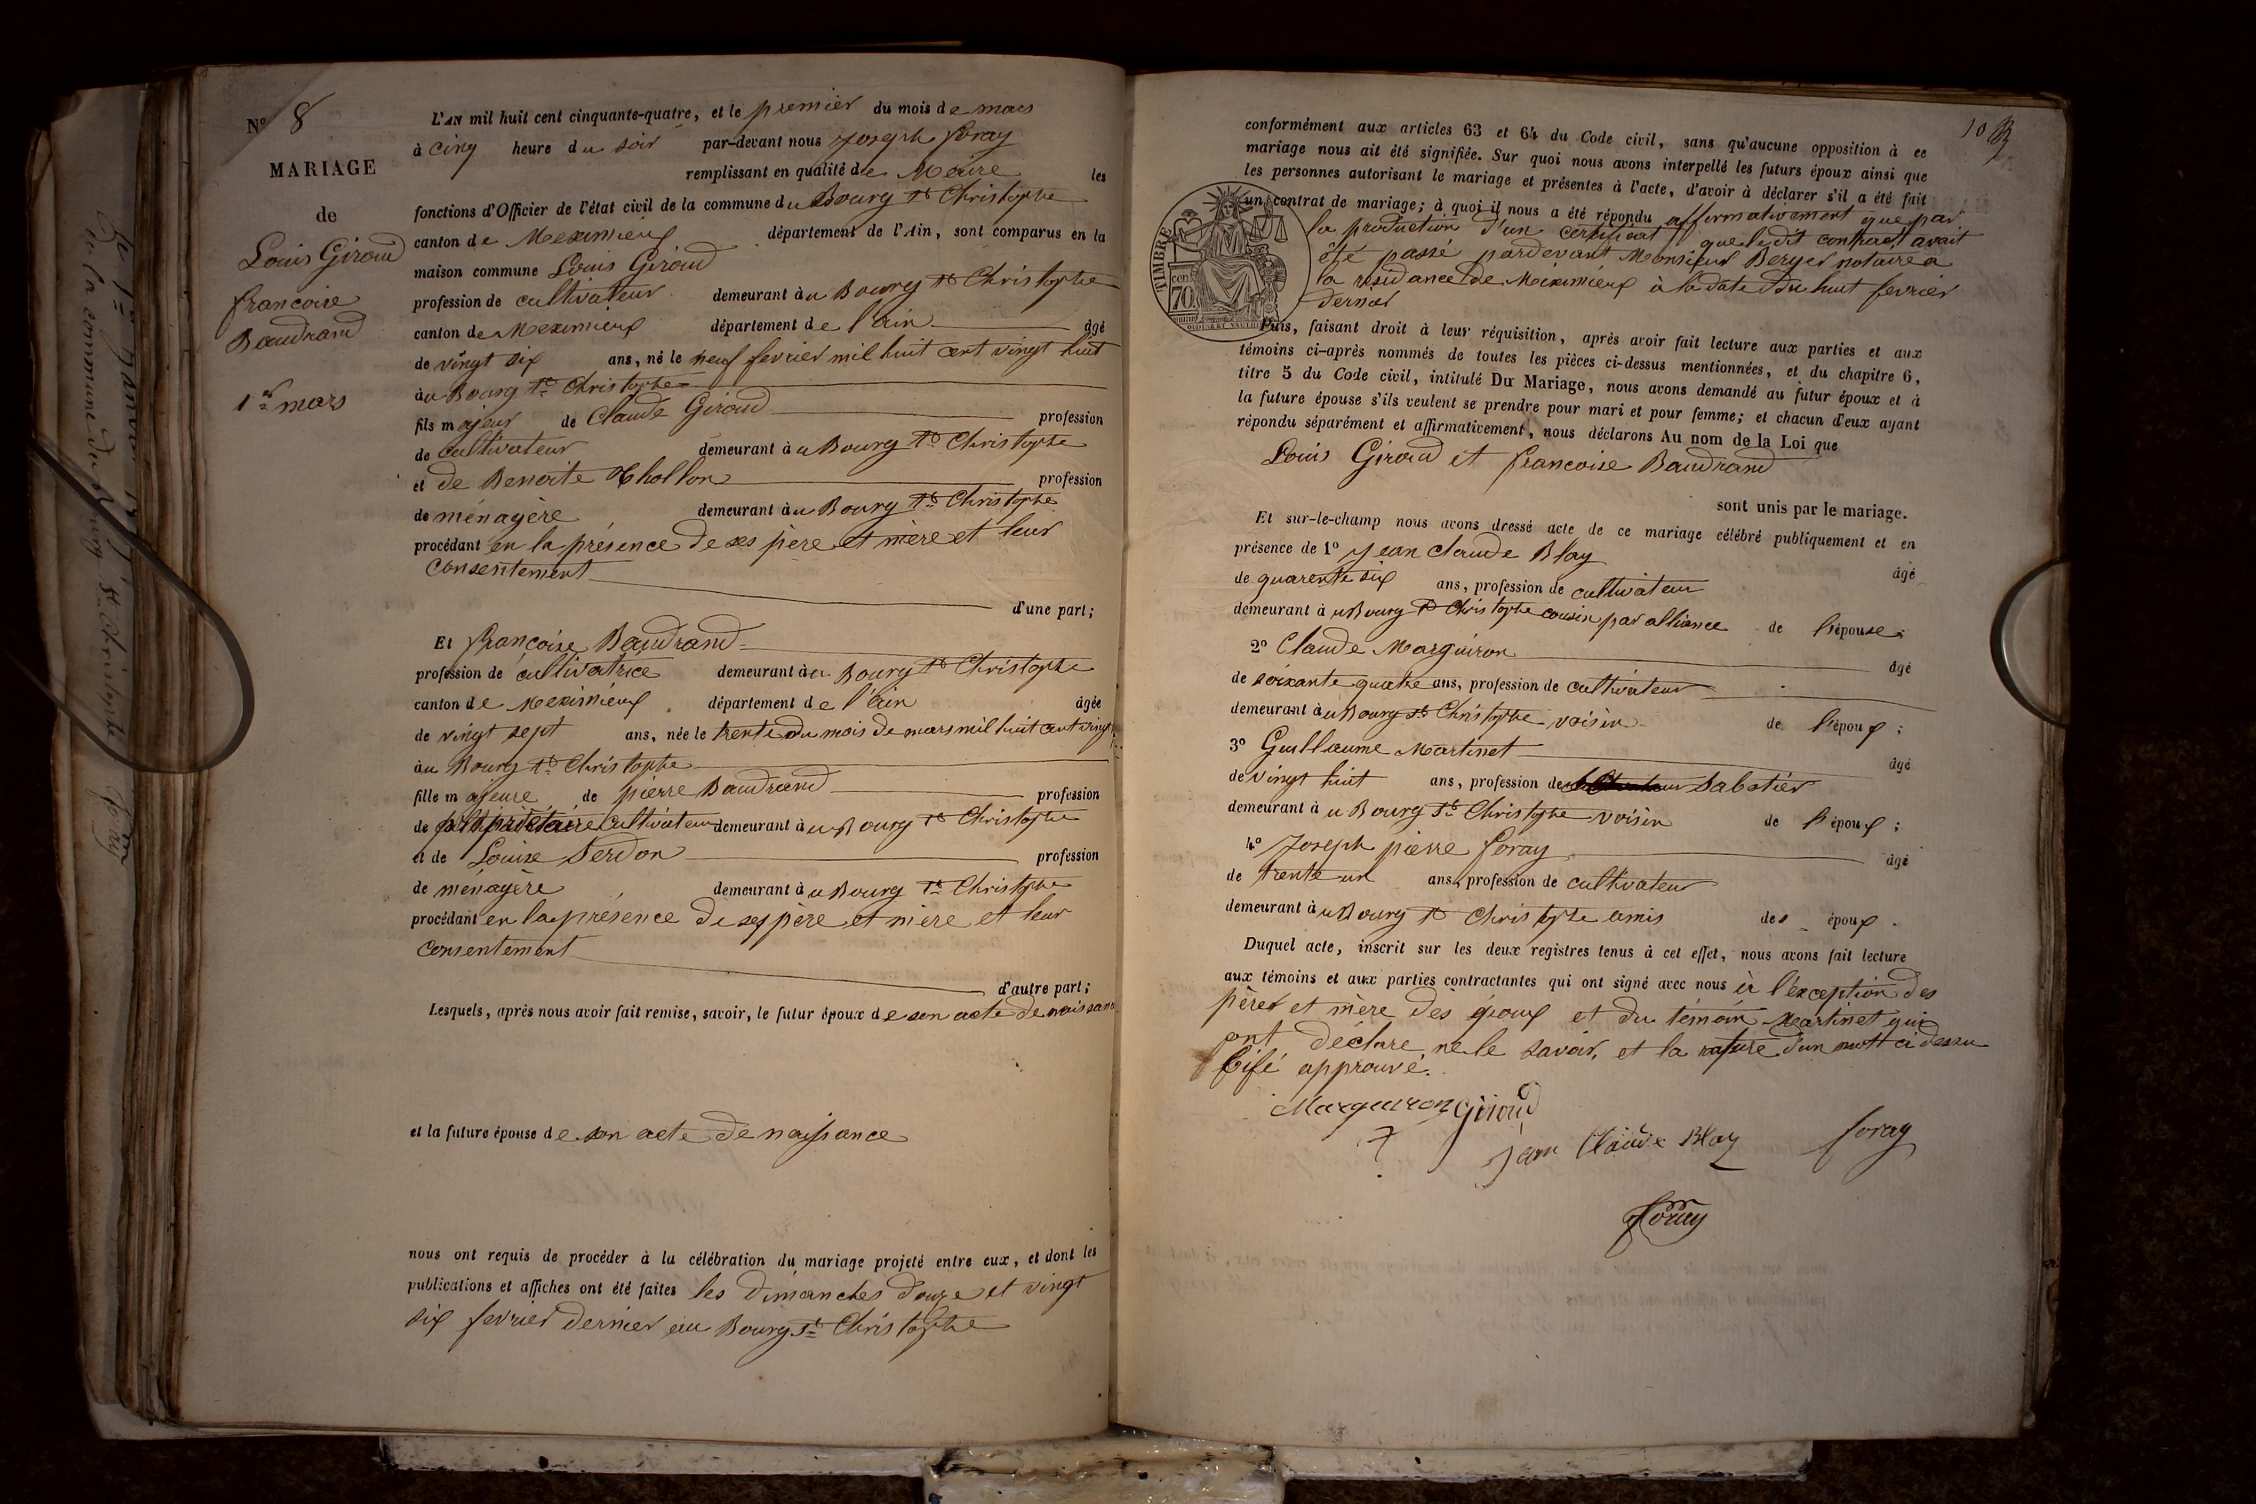 N° 8
MARIAGE
de
Louis Giroud
francoise
Baudrand
1er mars
L'AN mil huit cent cinquante-quatre, et le premier du mois de mars
à cinq heure du soir par-devant nous Joseph foray
remplissant en qualité de Maire les
fonctions d'Officier de l'état civil de la commune du Bourg St Christophe
canton de Meximieux département de l'Ain, sont comparus en la
maison commune Louis Giroud
profession de cultivateur demeurant àu Bourg St Christophe
canton de Meximieux département de l'ain âgé
de vingt six ans, né le neuf fevrier mil huit cent vingt huit
àu Bourg St Christophe
fils majeur de Claude Giroud profession
de cultivateur demeurant àu Bourg St Christophe
et de Benoite Chollon profession
de ménagère demeurant àu Bourg St Christophe
procédant en la présence de ses père et mère et leur
consentement
d'une part;
Et françoise Baudrand
profession de cultivatrice demeurant àu Bourg St Christophe
canton de Meximieux département de l'ain âgée
de vingt sept ans, née le trente du mois de mars mil huit cent vingt
àu Bourg St Christophe
fille majeure de pierre Baudrand profession
de propriétaire cultivateur demeurant àu Bourg St Christophe
et de Louise Serdon profession
de ménagère demeurant àu Bourg St Christophe
procédant en la présence de ses père et mère et leur
consentement
d'autre part;
Lesquels, après nous avoir fait remise, savoir, le futur époux de son acte de naissance
et la future épouse de son acte de naissance
nous ont requis de procéder à la célébration du mariage projeté entre eux, et dont les
publications et affiches ont été faites les dimanches douze et vingt
six fevrier dernier au Bourg St Christophe
10
conformément aux articles 63 et 64 du Code civil, sans qu'aucune opposition à ce
mariage nous ait été signifiée. Sur quoi nous avons interpellé les futurs époux ainsi que
les personnes autorisant le mariage et présentes à l'acte, d'avoir à déclarer s'il a été fait
un contrat de mariage; à quoi il nous a été répondu affirmativement que par
la production d'un certificat que ledit contract avait
été passé pardevant Monsieur Berger notaire a
la residance de Meximieux à la date du huit fevrier
dernier
TIMBRE
cen
70
Puis, faisant droit à leur réquisition, après avoir fait lecture aux parties et aux
témoins ci-après nommés de toutes les pièces ci-dessus mentionnées, et du chapitre 6,
titre 5 du Code civil, intitulé Du Mariage, nous avons demandé au futur époux et à
la future épouse s'ils veulent se prendre pour mari et pour femme; et chacun d'eux ayant
répondu séparément et affirmativement, nous déclarons Au nom de la Loi que
Louis Giroud et francoise Baudrand
sont unis par le mariage.
Et sur-le-champ nous avons dressé acte de ce mariage célébré publiquement et en
présence de 1° Jean claude Blay âgé
de quarente six ans, profession de cultivateur
demeurant àu Bourg St Christophe cousin par alliance de l'épouse;
2° Claude Marguiron âgé
de soixante quatre ans, profession de cultivateur
demeurant àu Bourg St Christophe voisin de l'époux;
3° Guillaume Martinet âgé
de vingt huit ans, profession de sabotier
demeurant àu Bourg St Christophe voisin de l'époux;
4° Joseph pierre foray âgé
de trente un ans, profession de cultivateur
demeurant àu Bourg St Christophe amis des époux.
Duquel acte, inscrit sur les deux registres tenus à cet effet, nous avons fait lecture
aux témoins et aux parties contractantes qui ont signé avec nous à l'exception des
pères et mère des époux et du témoin Martinet qui
ont déclare ne le savoir, et la rature d'un mott ci dessu
bifé approuvé.
Marguiron Giroud
Jean Claude Blay foray
foray